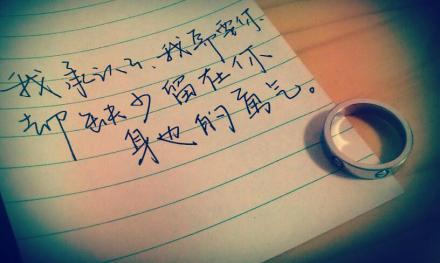 我承认了、我要你
却缺少留在你
身边的勇气。